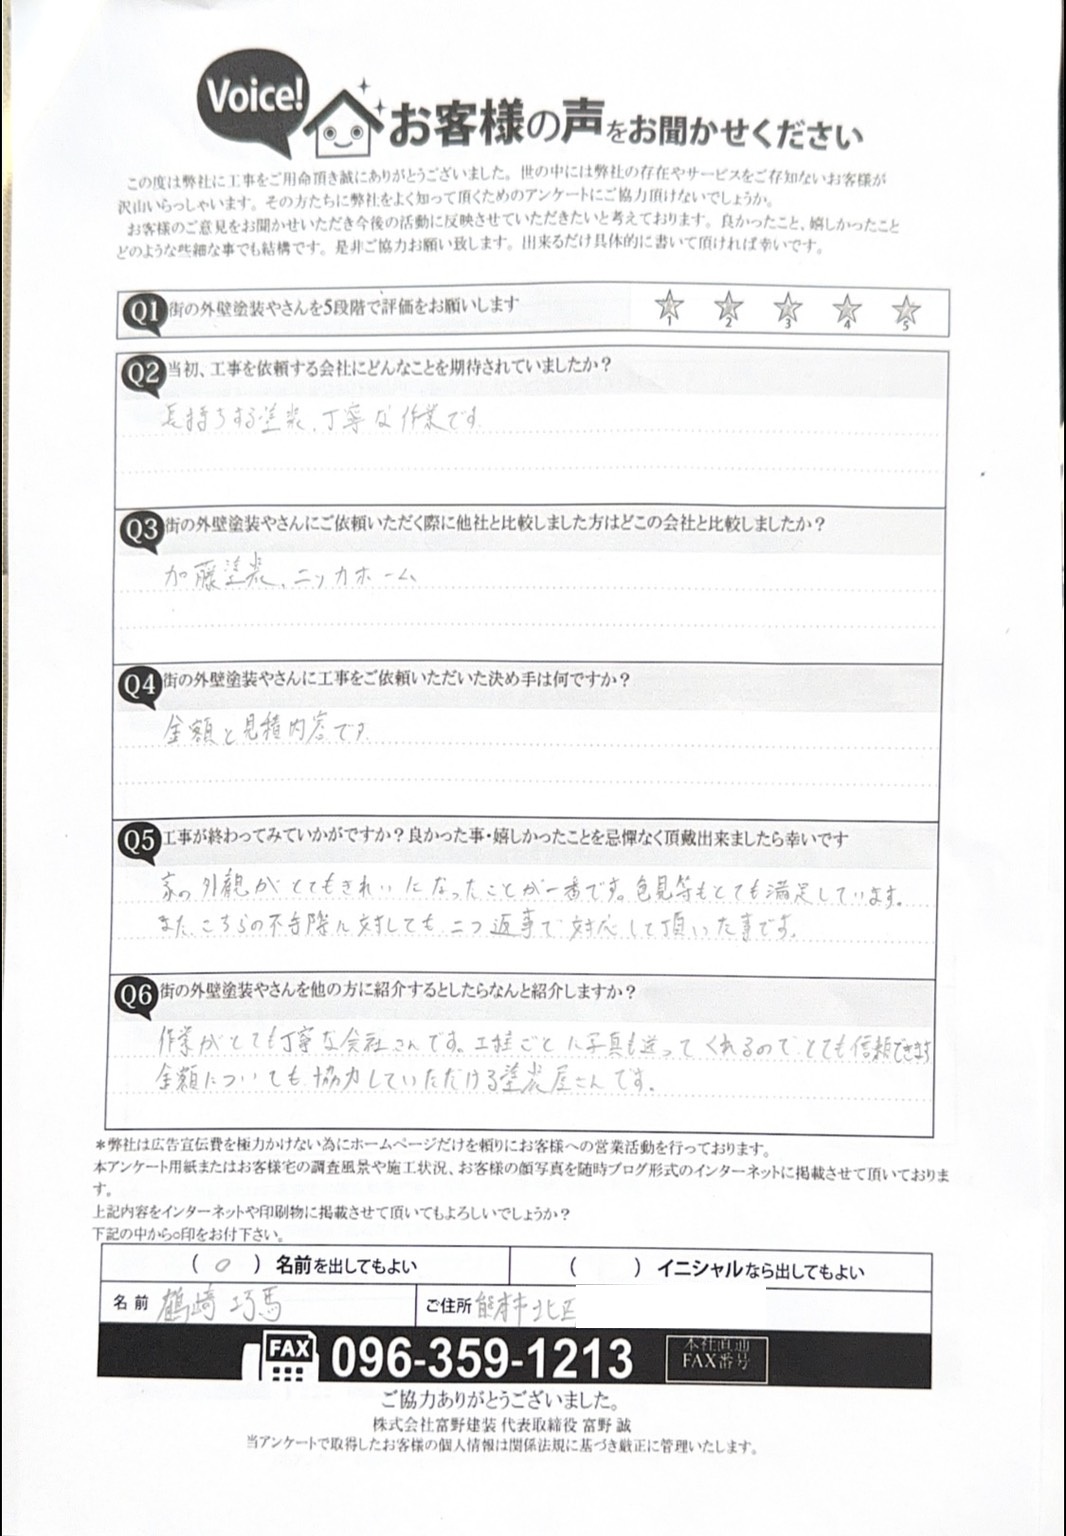 Voice!
お客様の声をお聞かせください
この度は弊社に工事をご用命頂き誠にありがとうございました。世の中には弊社の存在やサービスをご存知ないお客様が
沢山いらっしゃいます。その方たちに弊社をよく知って頂くためのアンケートにご協力頂けないでしょうか。
お客様のご意見をお聞かせいただき今後の活動に反映させていただきたいと考えております。良かったこと、嬉しかったこと
どのような些細な事でも結構です。是非ご協力お願い致します。出来るだけ具体的に書いて頂ければ幸いです。
Q1 街の外壁塗装やさんを5段階で評価をお願いします
1 2 3 4 5
Q2 当初、工事を依頼する会社にどんなことを期待されていましたか？
長持ちする塗装、丁寧な作業です
Q3 街の外壁塗装やさんにご依頼いただく際に他社と比較しました方はどこの会社と比較しましたか？
加藤塗装、ニッカホーム
Q4 街の外壁塗装やさんに工事をご依頼いただいた決め手は何ですか？
金額と見積内容です
Q5 工事が終わってみていかがですか？良かった事・嬉しかったことを忌憚なく頂戴出来ましたら幸いです
家の外観がとてもきれいになったことが一番です。色見等もとても満足しています。
また、こちらの不手際に対しても、二つ返事で対応して頂いた事です。
Q6 街の外壁塗装やさんを他の方に紹介するとしたらなんと紹介しますか？
作業がとても丁寧な会社さんです。工程ごとに写真も送ってくれるので、とても信頼できます
金額についても、協力していただける塗装屋さんです。
＊弊社は広告宣伝費を極力かけない為にホームページだけを頼りにお客様への営業活動を行っております。
本アンケート用紙またはお客様宅の調査風景や施工状況、お客様の顔写真を随時ブログ形式のインターネットに掲載させて頂いておりま
す。
上記内容をインターネットや印刷物に掲載させて頂いてもよろしいでしょうか？
下記の中から○印をお付下さい。
（ ○ ）名前を出してもよい （ ）イニシャルなら出してもよい
名前 鶴﨑 巧馬 ご住所 熊本市北区
FAX 096-359-1213 本社直通
FAX番号
ご協力ありがとうございました。
株式会社富野建装 代表取締役 富野 誠
当アンケートで取得したお客様の個人情報は関係法規に基づき厳正に管理いたします。